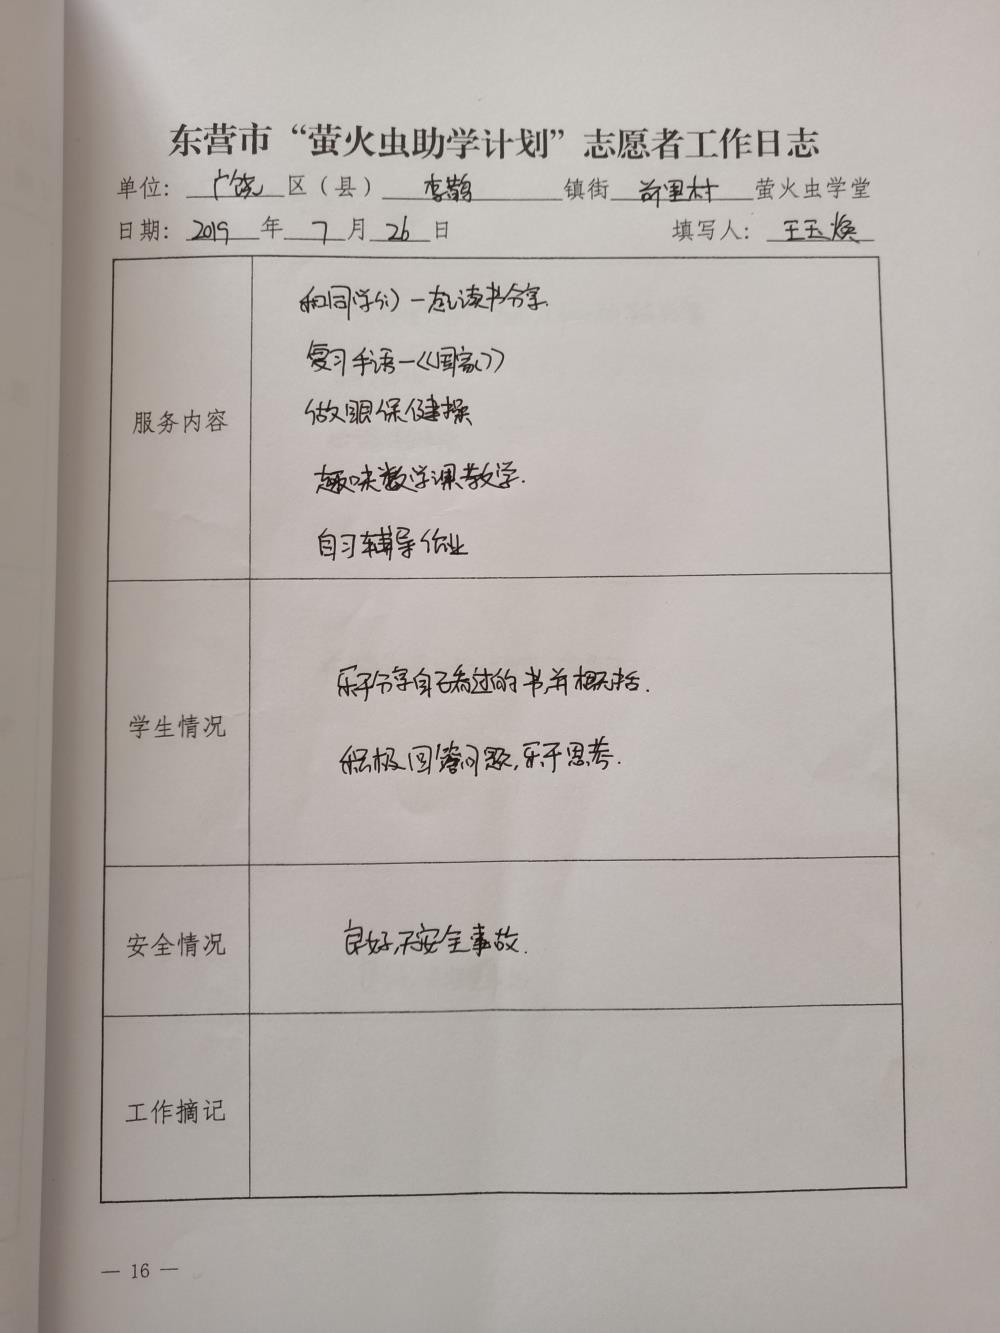 东营市“萤火虫助学计划”志愿者工作日志
单位：广饶区（县）李鹊镇街前里村萤火虫学堂
日期：2019年7月26日 填写人：王玉焕
服务内容
和同学们一起读书分享.
复习手语—《国家》
做眼保健操
趣味数学课教学.
自习辅导作业
学生情况
乐于分享自己看过的书,并概括.
积极回答问题,乐于思考.
安全情况
良好,无安全事故.
工作摘记
— 16 —